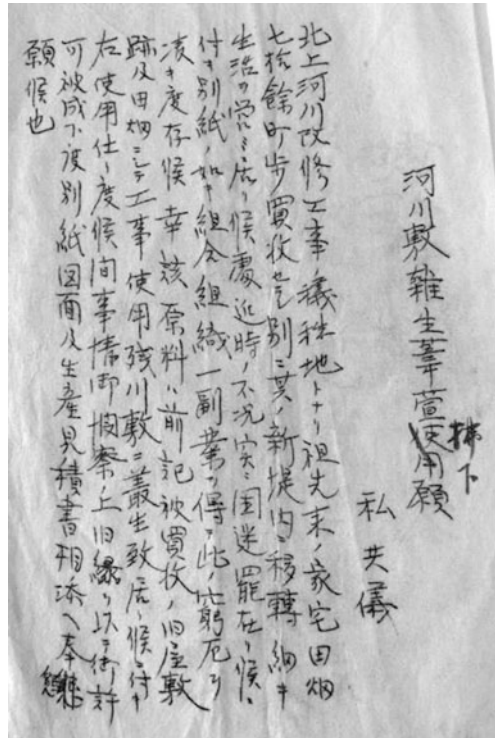 河川敷雑生葦萱使用願
拂下
私共儀
北上河川改修工事ノ犠牲地トナリ祖先来ノ家宅田畑
七拾餘町歩買收セラレ別ニ其ノ新堤内ニ移轉シ細キ
生活ヲ営ミ居リ候處近時ノ不況実ニ困迷罷在リ候ニ
付キ別紙ノ如キ組合組織一副業ヲ得テ此ノ窮厄ヲ
凌キ度存候幸該原料ハ前記被買收ノ旧屋敷
跡及田畑ニシテ工事使用残川敷ニ叢生致居リ候ニ付キ
右使用仕リ度候間事情御推察ノ上旧縁ヲ以テ御許
可被成下度別紙図面及生産見積書相添ヘ奉懇
願候也